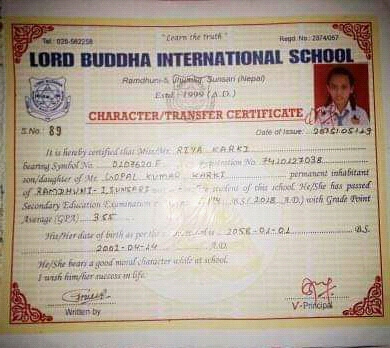 Tel : 025-562258 "Learn the truth" Regd. No.: 2874/057
LORD BUDDHA INTERNATIONAL SCHOOL
Ramdhuni-5, Jhumka, Sunsari (Nepal)
Estd.-1999 (A.D.)
CHARACTER/TRANSFER CERTIFICATE
S.No. 89 Date of Issue:
It is hereby certified that Miss/Mr. RIYA KARKI
bearing Symbol No. Registration No. 7410127038
son/daughter of Mr. GOPAL KUMAR KARKI permanent inhabitant
of RAMDHUNI-1, SUNSARI student of this school. He/She has passed
Secondary Education Examination B.S. (2018 A.D.) with Grade Point
Average (GPA) 3.55
His/Her date of birth as per the 2058-01-01 B.S.
2001-04-14 A.D.
He/She bears a good moral character while at school.
I wish him/her success in life.
Written by V-Principal